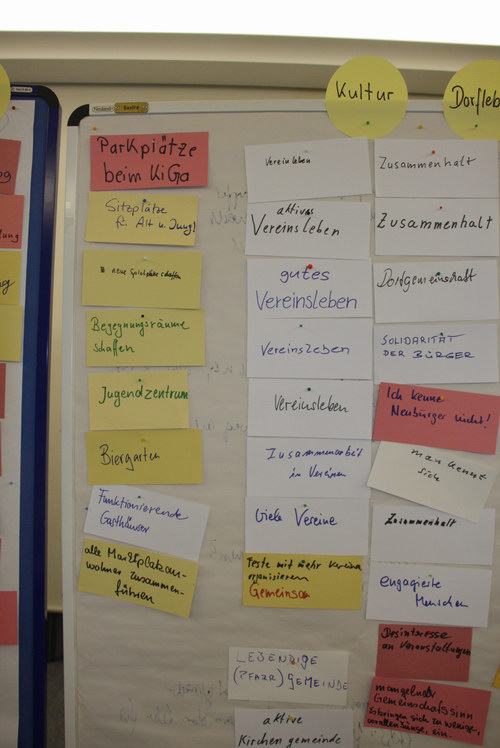 Parkplätze
beim KiGa
Sitzplätze
für Alt u. Jung!
neue Spielplätze schaffen
Begegnungsräume
schaffen
Jugendzentrum
Biergarten
Funktionierende
Gasthäuser
alle Marktplatzan-
wohner zusammen-
führen
Kultur
Vereinsleben
aktives
Vereinsleben
gutes
Vereinsleben
Vereinsleben
Vereinsleben
Zusammenarbeit
in Vereinen
Viele Vereine
Feste mit mehr Vereinen
organisieren
Gemeinsam
LEBENDIGE
(PFARR)GEMEINDE
aktive
Kirchengemeinde
Dorfleb
Zusammenhalt
Zusammenhalt
Dorfgemeinschaft
SOLIDARITÄT
DER BÜRGER
Ich kenne
Neubürger nicht!
man kennt
sich
Zusammenhalt
engagierte
Menschen
Desinteresse
an Veranstaltungen
mangelnder
Gemeinschaftssinn
bringen sich zu wenige,
ein.